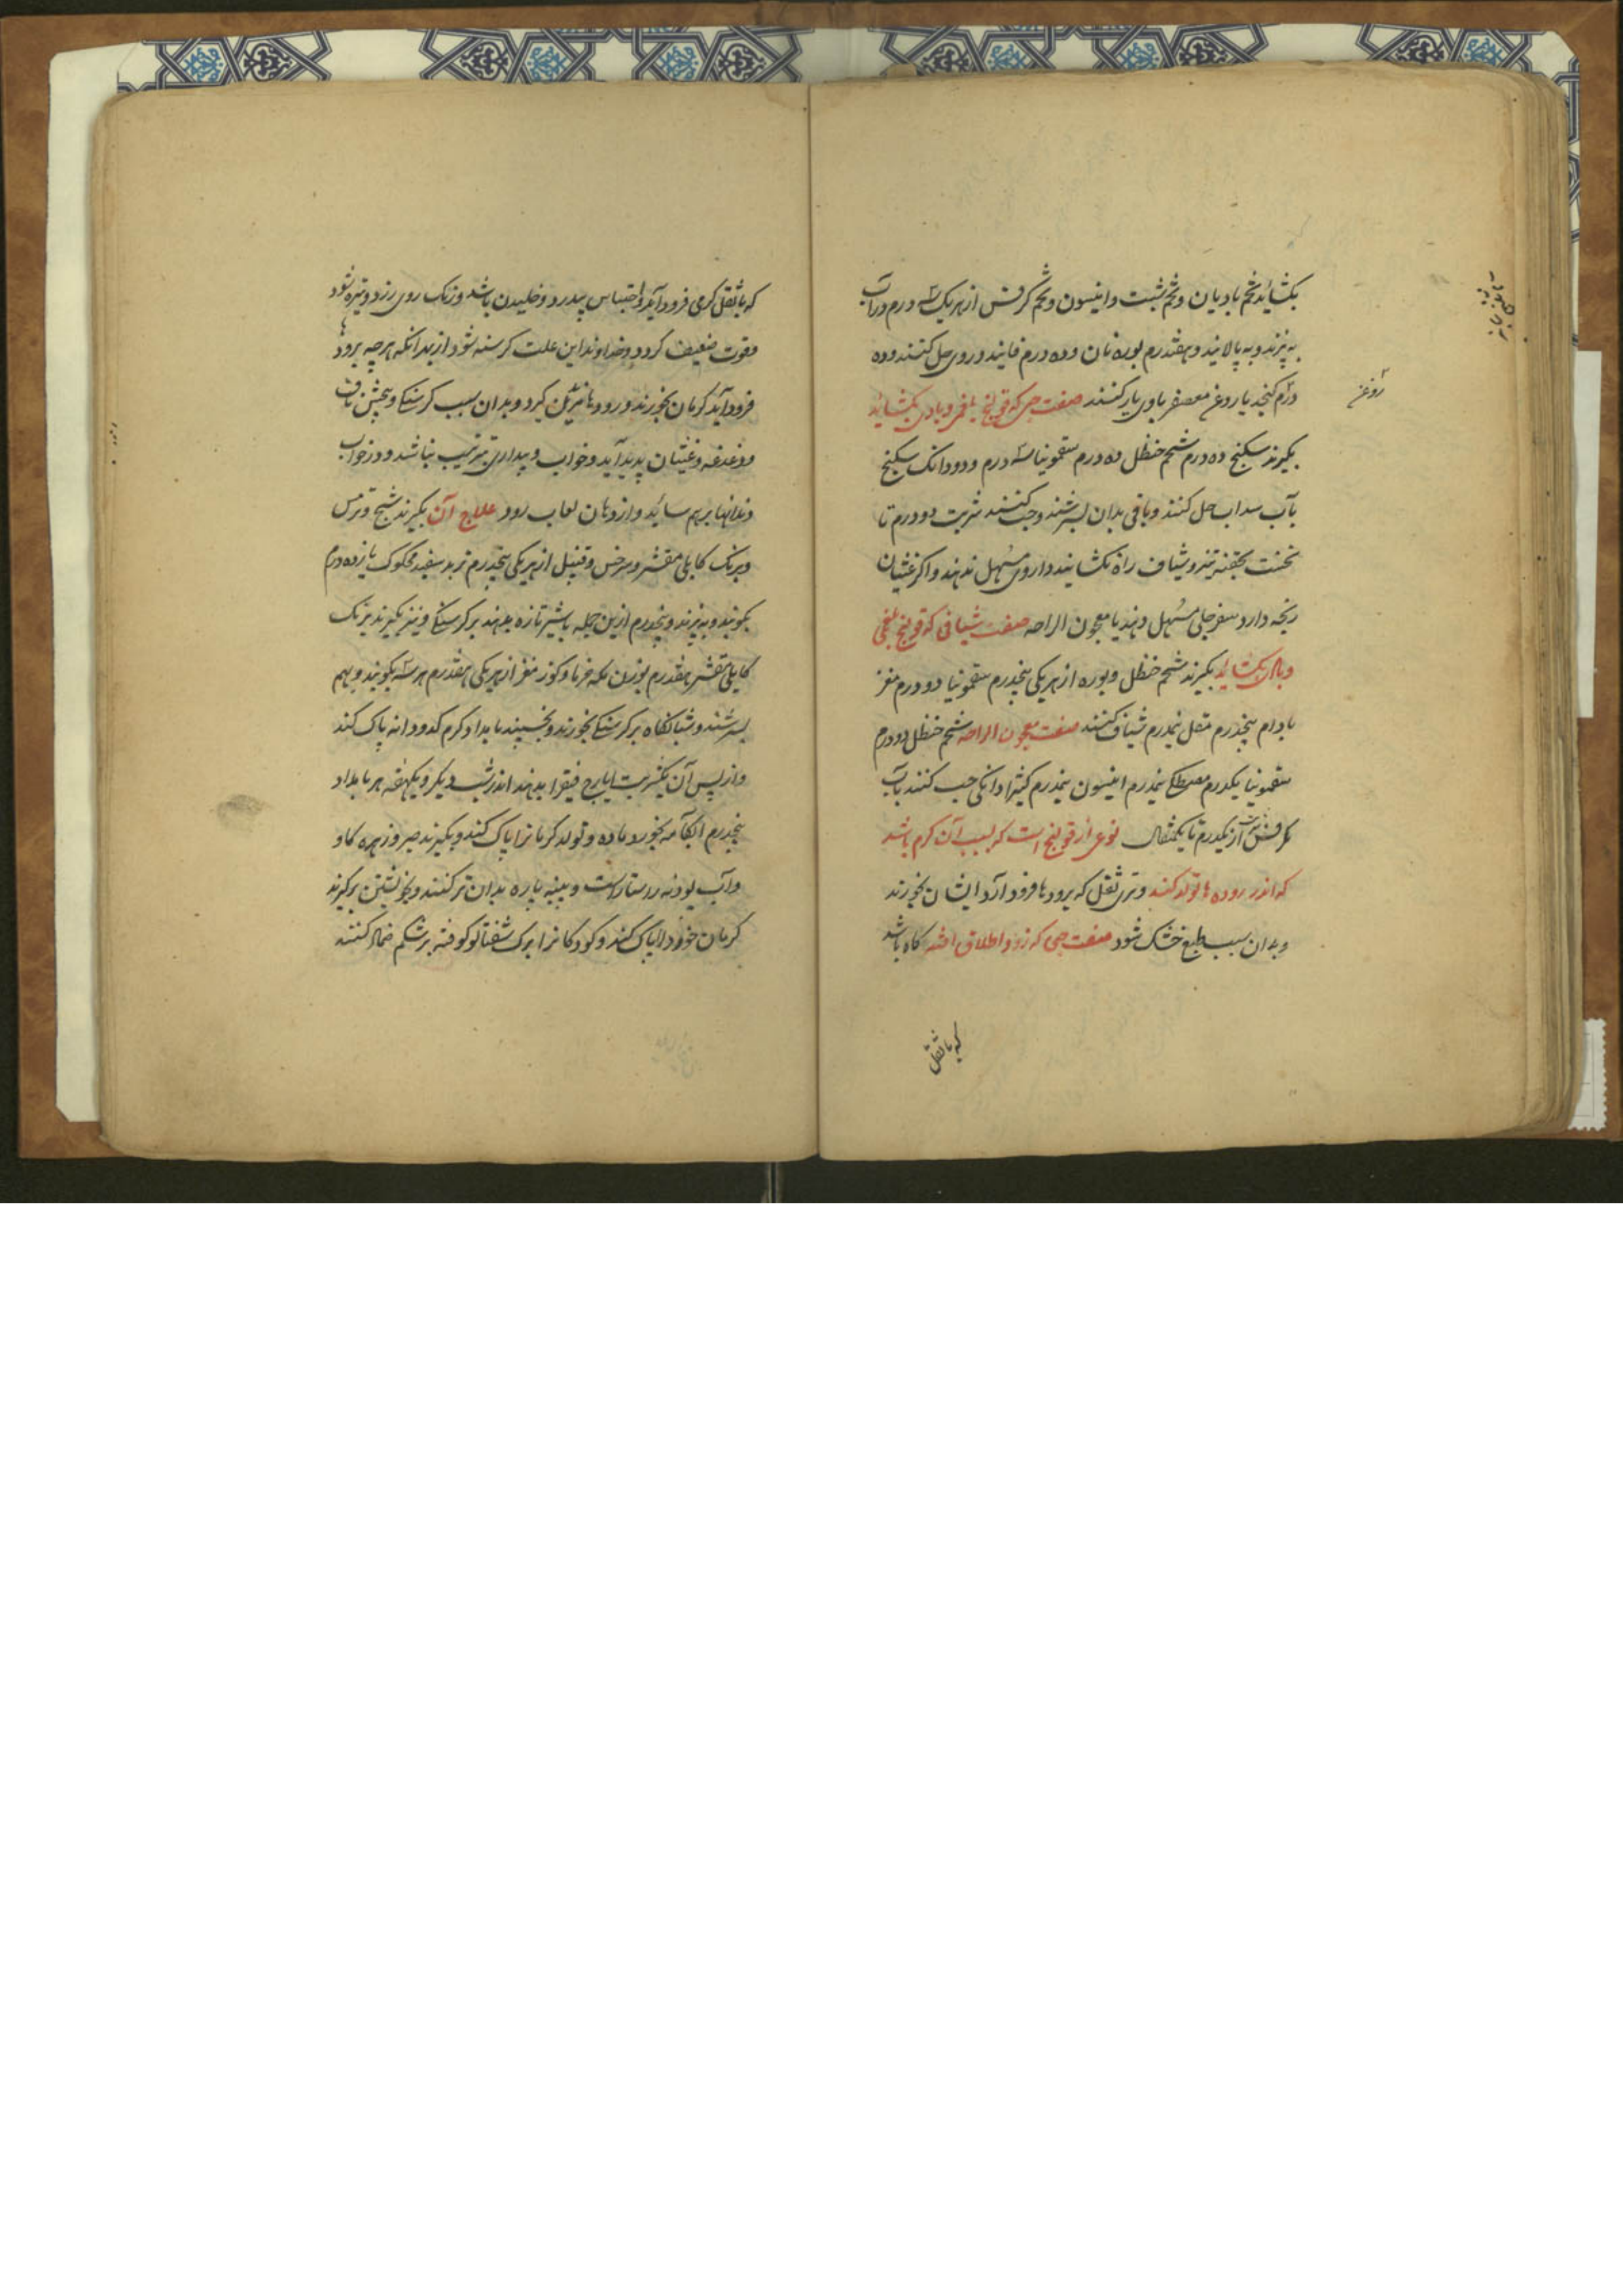 بکشاید تخم بادیان و تخم شبت و انیسون و تخم کرفس از هر یک سه درم در آب
به پزند و به پالایند و هفتدرم بوره نان و ده درم فانید در وی حل کنند و ده
درم کنجد یا روغن معصفر با وی یار کنند صفت حبی که قولنج بلغمی و بادی بکشاید
بگیرند سکبینج ده درم شحم حنظل ده درم سقمونیا سه درم و دو دانک سکبینج
بآب سداب حل کنند و باقی بدان بسرشند و حب کنند شربت دو درم تا
نخست بحقنه تیز و شیاف راه نکشایند داروی مسهل ندهند و اکر غثیان
رنجه دارد سفرجلی مسهل دهند یا معجون الراحه صفت شیافی که قولنج بلغمی
و بادی بکشاید بکیرند شحم حنظل و بوره از هر یکی پنجدرم سقمونیا دو درم مغز
بادام پنجدرم مقل نیمدرم شیاف کنند صفت معجون الراحه شحم حنظل دو درم
سقمونیا یکدرم مصطکی نیمدرم انیسون نیمدرم کتیرا دانکی حب کنند بآب
کرفس شربت از یکدرم تا یکمثقال نوعی از قولنج است که بسبب آن کرم باشد
که اندر روده ها تولد کند و تری ثقل که برودها فرود آید ایشان بخورند
و بدان سبب طبع خشک شود صفت حبی که زود اطلاق افتد کاه باشد
که با ثقل
روغن
که با ثقل کرمی فرود آید و احتباس بی درد و خلیدن باشد و رنک روی زرد و تیره شود
و قوت ضعیف کردد و خداوند این علت کرسنه شود از بهر آنکه هر چه برودها
فرود آید کرمان بخورند و رودها نیز بدان کیرد و بدان سبب کرسنکی و پیچش ناف
و دغدغه و غثیان پدید آید و خواب و بیداری بترتیب نباشد و در خواب
دندانها بر هم ساید و از دهان لعاب رود علاج آن بکیرند شیح و ترمس
و برنک کابلی مقشر و سرخس و قنبیل از هر یکی پنجدرم تربد سفید محکوک پانزده درم
بکوبند و به بیزند و پنجدرم ازین جمله با شیر تازه بدهند بر کرسنکی و نیز بکیرند برنک
کابلی مقشر هفتدرم بوزن مکه خرما و کوز مغز از هر یکی هفتدرم هر سه بکوبند و بهم
بسرشند و شبانکاه بر کرسنکی بخورند و بخسپند بامداد کرم کدودانه پاک کند
و از پس آن یکشربت ایارج فیقرا بدهند اندر شب دیکر و یکهفته هر بامداد
پنجدرم آبکامه بخورد ماده و تولد کرمانرا پاک کند و بکیرند صبر و زهره کاو
و آب پودنه راستا راست و پنبه پاره بدان تر کنند و بخویشتن برکیرند
کرمان خورد را پاک کند و کودکانرا برک شفتالو کوفته بر شکم ضماد کنند